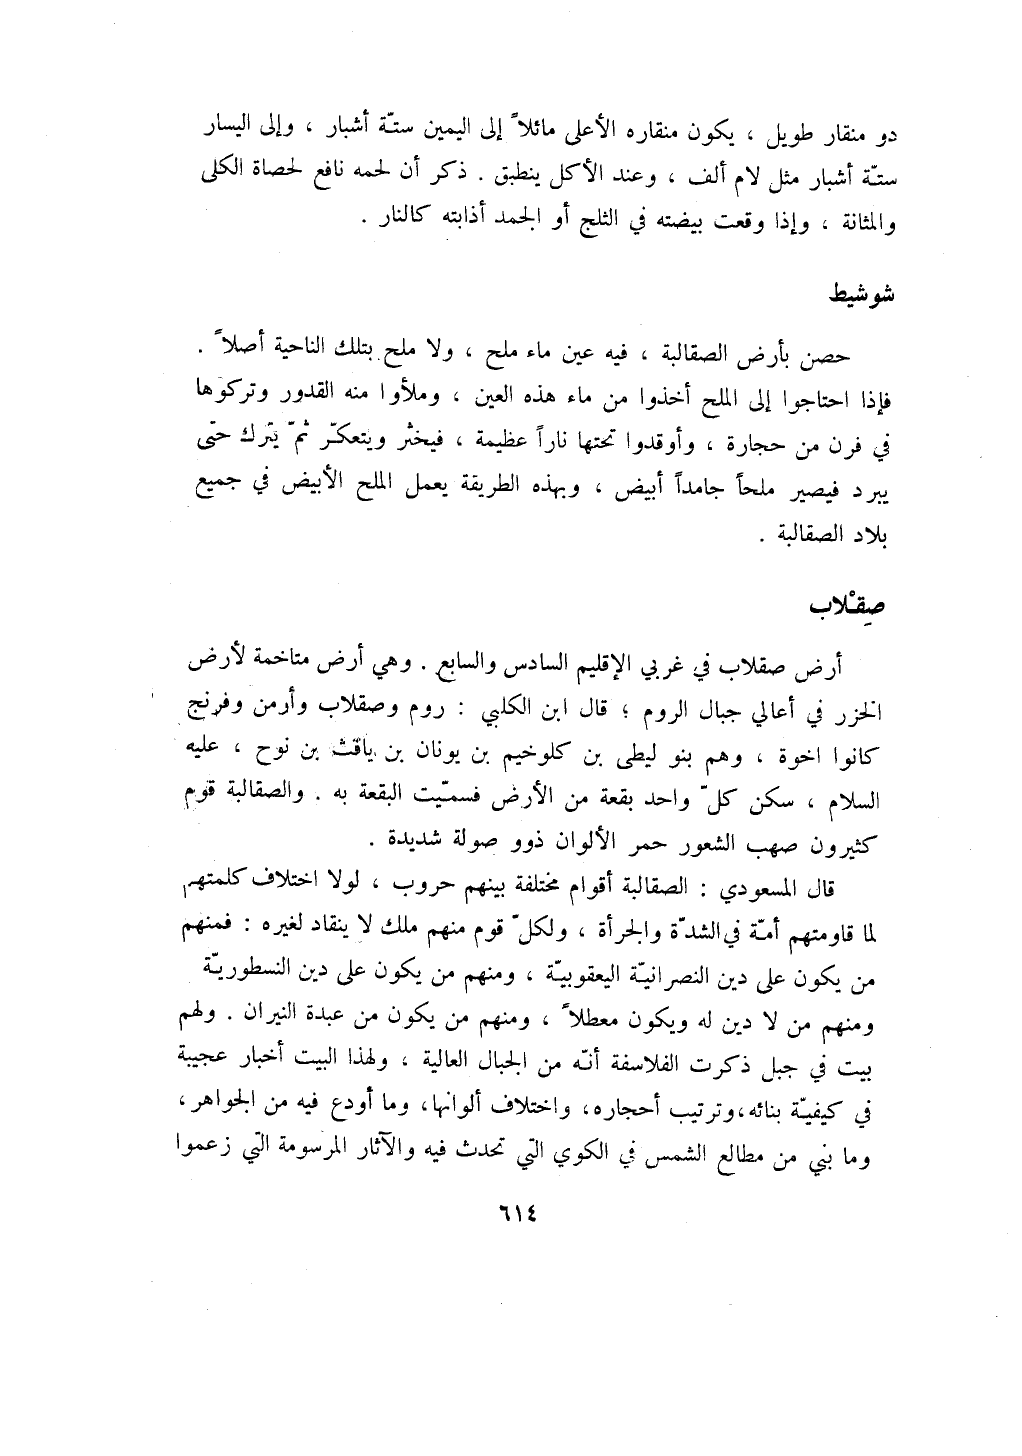 دو منقار طويل ، يكون منقاره الأعلى مائلاً إلى اليمين ستّة أشبار ، وإلى اليسار
ستّة أشبار مثل لام ألف ، وعند الأكل ينطبق . ذكر أن لحمه نافع لحصاة الكلى
والمثانة ، وإذا وقعت بيضته في الثلج أو الجمد أذابته كالنار .
شوشيط
حصن بأرض الصقالبة ، فيه عين ماء ملح ، ولا ملح بتلك الناحية أصلاً .
فإذا احتاجوا إلى الملح أخذوا من ماء هذه العين ، وملأوا منه القدور وتركوها
في فرن من حجارة ، وأوقدوا تحتها ناراً عظيمة ، فيخثر ويتعكّر ثمّ يترك حتّى
يبرد فيصير ملحاً جامداً أبيض ، وبهذه الطريقة يعمل الملح الأبيض في جميع
بلاد الصقالبة .
صِقْلاب
أرض صقلاب في غربي الإقليم السادس والسابع . وهي أرض متاخمة لأرض
الخزر في أعالي جبال الروم ؛ قال ابن الكلبي : روم وصقلاب وأرمن وفرنج
كانوا اخوة ، وهم بنو ليطى بن كلوخيم بن يونان بن ياقث بن نوح ، عليه
السلام ، سكن كلّ واحد بقعة من الأرض فسمّيت البقعة به . والصقالبة قوم
كثيرون صهب الشعور حمر الألوان ذوو صولة شديدة .
قال المسعودي : الصقالبة أقوام مختلفة بينهم حروب ، لولا اختلاف كلمتهم
لما قاومتهم أمّة في الشدّة والجرأة ، ولكلّ قوم منهم ملك لا ينقاد لغيره : فمنهم
من يكون على دين النصرانيّة اليعقوبيّة ، ومنهم من يكون على دين النسطوريّة
ومنهم من لا دين له ويكون معطلاً ، ومنهم من يكون من عبدة النيران . ولهم
بيت في جبل ذكرت الفلاسفة أنّه من الجبال العالية ، ولهذا البيت أخبار عجيبة
في كيفيّة بنائه، وترتيب أحجاره، واختلاف ألوانها، وما أودع فيه من الجواهر،
وما بني من مطالع الشمس في الكوي التي تحدث فيه والآثار المرسومة التي زعموا
٦١٤